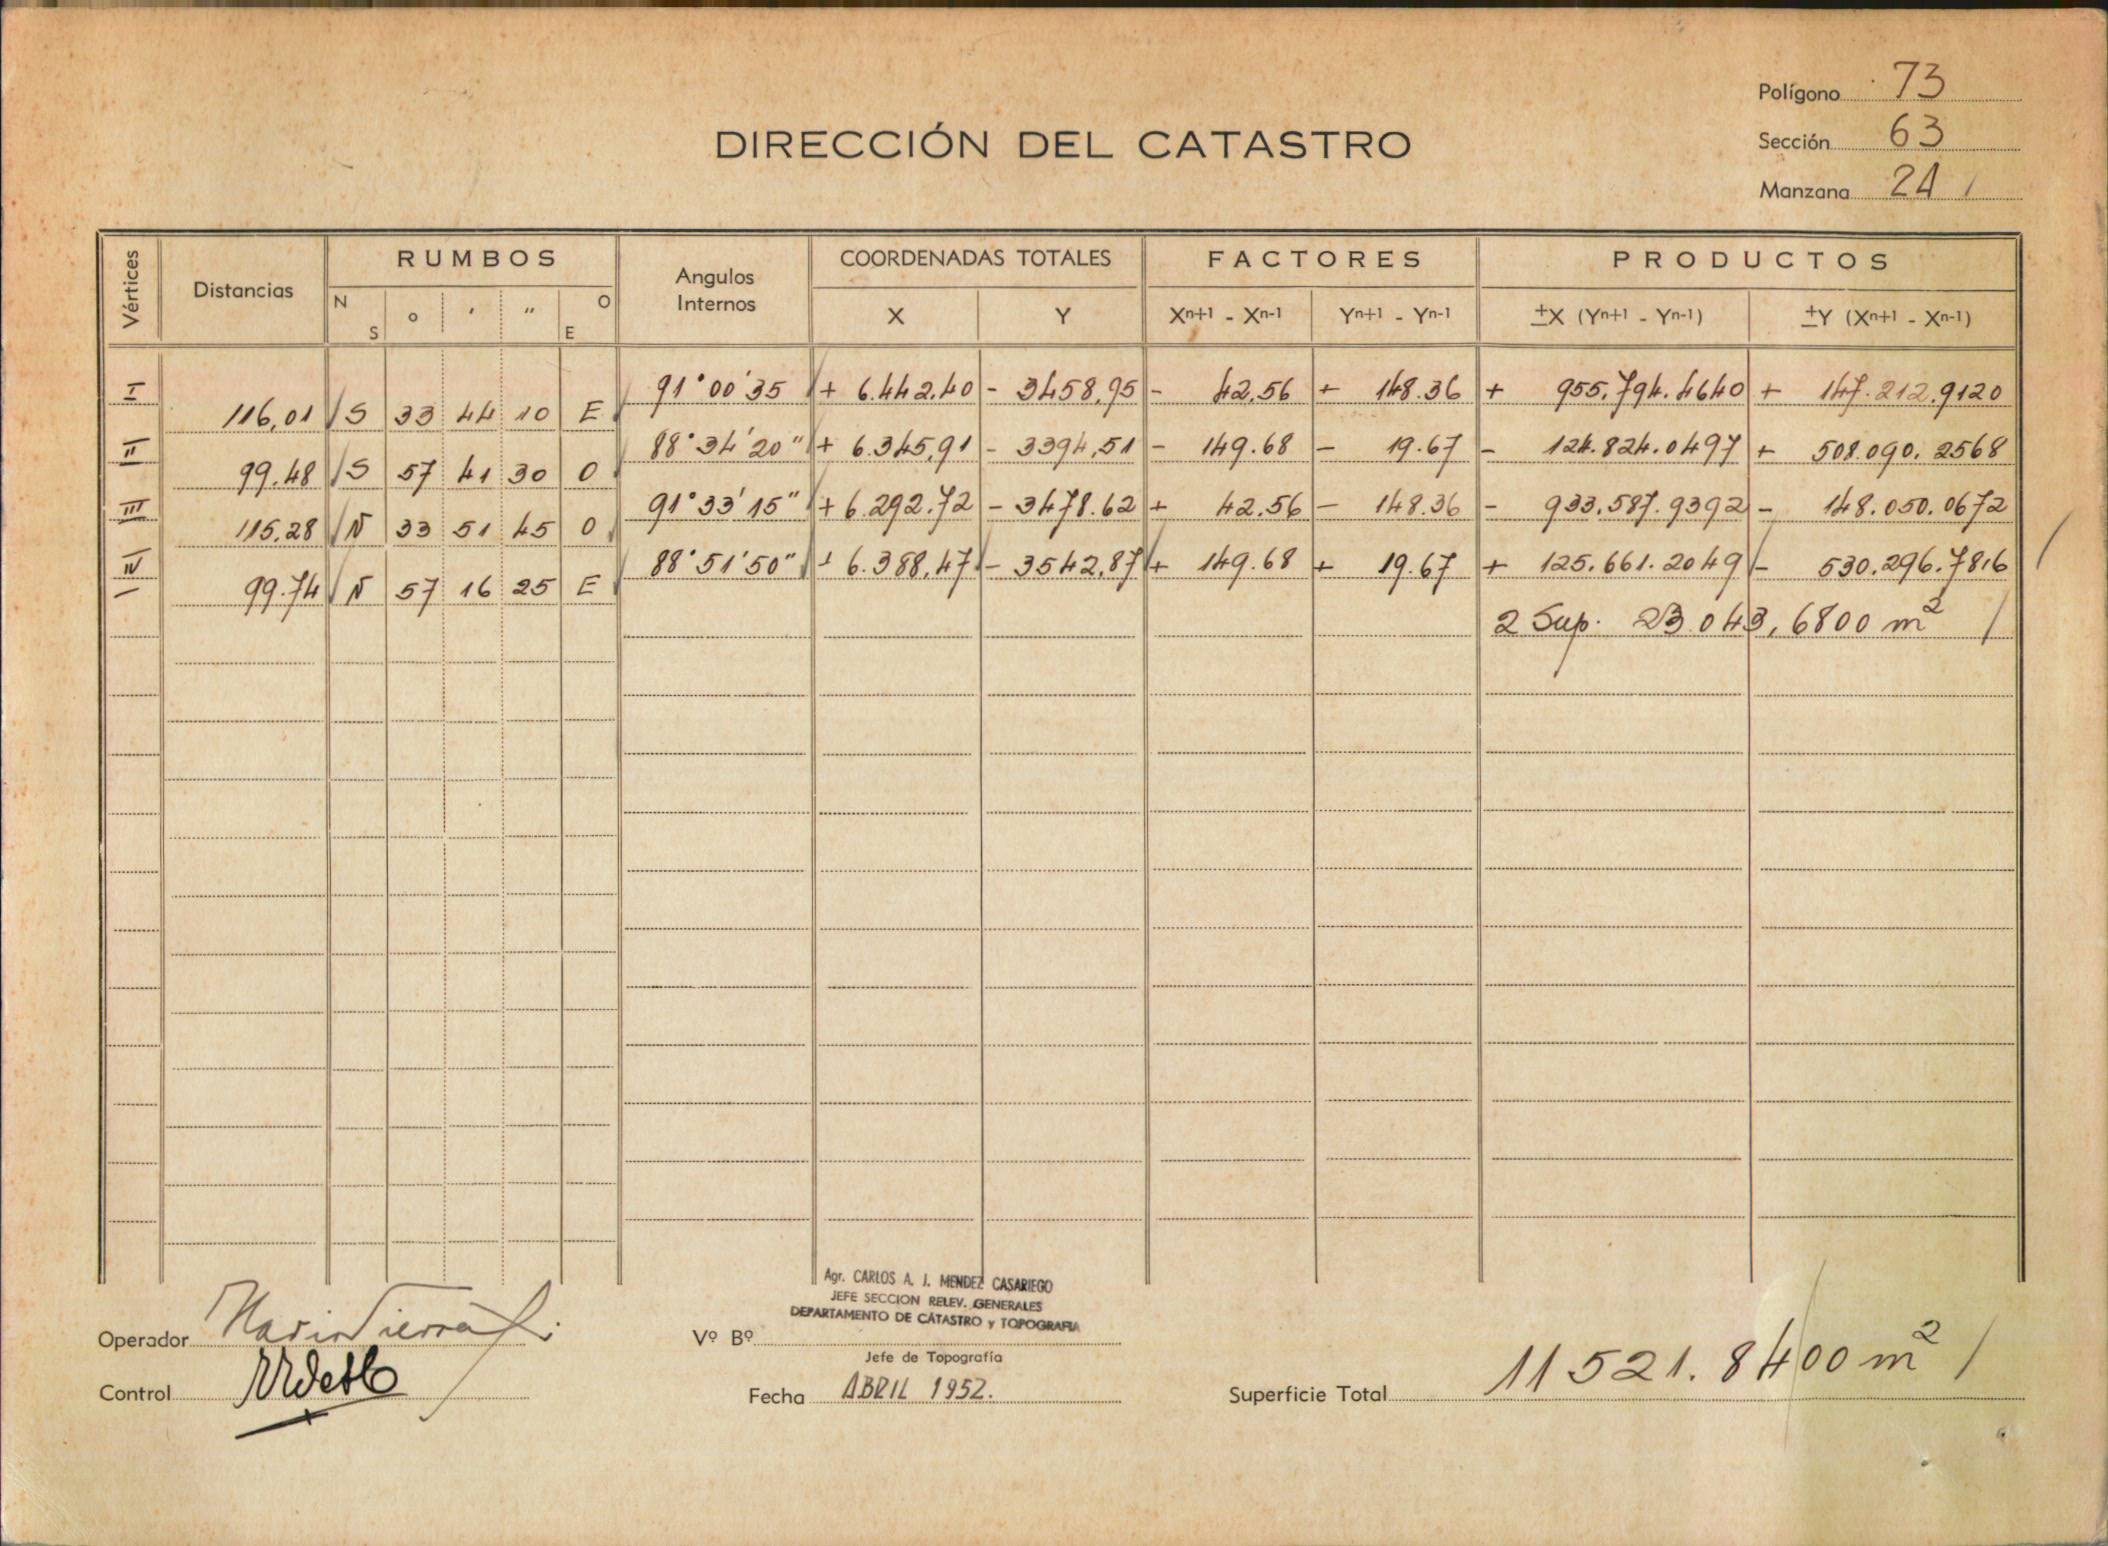 Polígono 73
DIRECCIÓN DEL CATASTRO
Sección 63
Manzana 24 /
Vértices Distancias RUMBOS Angulos Internos COORDENADAS TOTALES FACTORES PRODUCTOS
N S o ' " O E X Y Xn+1 - Xn-1 Yn+1 - Yn-1 ±X (Yn+1 - Yn-1) ±Y (Xn+1 - Xn-1)
I 91°00'35 + 6.442.40 - 3458,95 - 42,56 + 148.36 + 955.794.4640 + 147.212.9120
116,01 S 33 44 10 E
II 88°34'20" + 6.345,91 - 3394,51 - 149.68 - 19.67 - 124.824.0497 + 508.090.2568
99.48 S 57 41 30 O
III 91°33'15" + 6.292.72 - 3478.62 + 42.56 - 148.36 - 933.587.9392 - 148.050.0672
115.28 N 33 51 45 O
IV 88°51'50" + 6.388,47 - 3542,87 + 149.68 + 19.67 + 125.661.2049 - 530.296.7816
99.74 N 57 16 25 E
2 Sup. 23.043,6800 m² /
Agr. CARLOS A. J. MENDEZ CASARIEGO
JEFE SECCION RELEV. GENERALES
DEPARTAMENTO DE CATASTRO y TOPOGRAFIA
Operador
Vº Bº
Jefe de Topografía
Control
Fecha ABRIL 1952.
Superficie Total 11521.8400 m² /